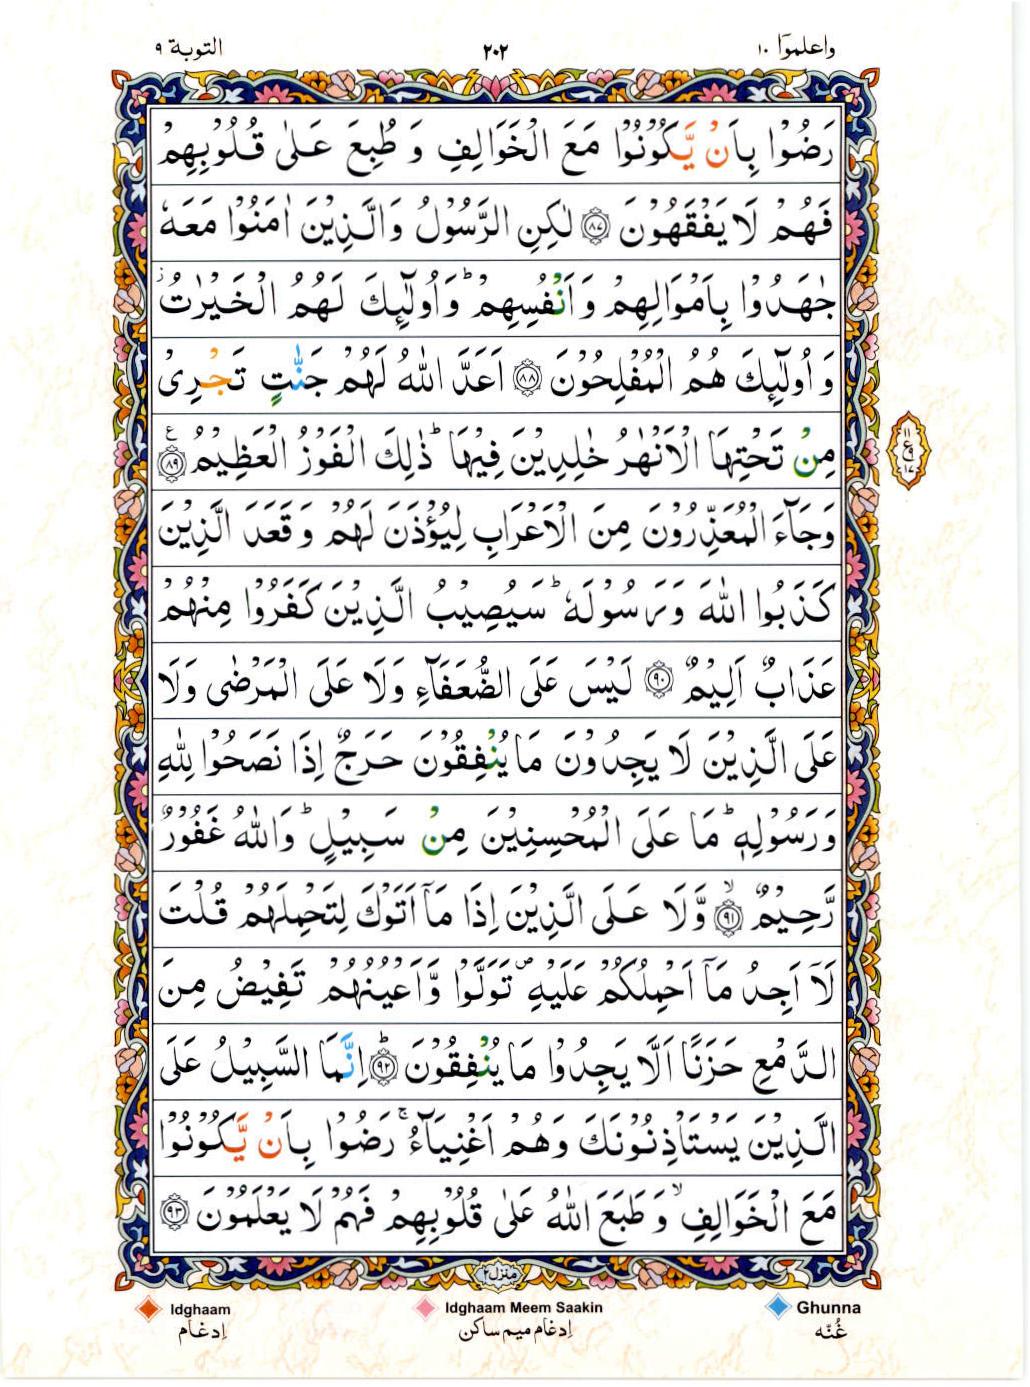 واعلموٓا ١٠
٢٠٢
التوبة ٩
رَضُوْا بِاَنْ يَّكُوْنُوْا مَعَ الْخَوَالِفِ وَ طُبِعَ عَلٰى قُلُوْبِهِمْ
فَهُمْ لَا يَفْقَهُوْنَ ﴿٨٧﴾ لٰكِنِ الرَّسُوْلُ وَالَّذِيْنَ اٰمَنُوْا مَعَهٗ
جٰهَدُوْا بِاَمْوَالِهِمْ وَاَنْفُسِهِمْ ؕ وَاُولٰٓئِكَ لَهُمُ الْخَيْرٰتُ ز
وَ اُولٰٓئِكَ هُمُ الْمُفْلِحُوْنَ ﴿٨٨﴾ اَعَدَّ اللّٰهُ لَهُمْ جَنّٰتٍ تَجْرِىْ
مِنْ تَحْتِهَا الْاَنْهٰرُ خٰلِدِيْنَ فِيْهَا ؕ ذٰلِكَ الْفَوْزُ الْعَظِيْمُ ﴿٨٩﴾ ع
١١
ع
١٤
وَجَآءَ الْمُعَذِّرُوْنَ مِنَ الْاَعْرَابِ لِيُؤْذَنَ لَهُمْ وَقَعَدَ الَّذِيْنَ
كَذَبُوا اللّٰهَ وَرَسُوْلَهٗ ؕ سَيُصِيْبُ الَّذِيْنَ كَفَرُوْا مِنْهُمْ
عَذَابٌ اَلِيْمٌ ﴿٩٠﴾ لَيْسَ عَلَى الضُّعَفَآءِ وَلَا عَلَى الْمَرْضٰى وَلَا
عَلَى الَّذِيْنَ لَا يَجِدُوْنَ مَا يُنْفِقُوْنَ حَرَجٌ اِذَا نَصَحُوْا لِلّٰهِ
وَرَسُوْلِهٖ ؕ مَا عَلَى الْمُحْسِنِيْنَ مِنْ سَبِيْلٍ ؕ وَاللّٰهُ غَفُوْرٌ
رَّحِيْمٌ ﴿٩١﴾ ۙ وَّلَا عَلَى الَّذِيْنَ اِذَا مَآ اَتَوْكَ لِتَحْمِلَهُمْ قُلْتَ
لَآ اَجِدُ مَآ اَحْمِلُكُمْ عَلَيْهِ ۪ تَوَلَّوْا وَّاَعْيُنُهُمْ تَفِيْضُ مِنَ
الدَّمْعِ حَزَنًا اَلَّا يَجِدُوْا مَا يُنْفِقُوْنَ ﴿٩٢﴾ ؕ اِنَّمَا السَّبِيْلُ عَلَى
الَّذِيْنَ يَسْتَاْذِنُوْنَكَ وَهُمْ اَغْنِيَآءُ ۚ رَضُوْا بِاَنْ يَّكُوْنُوْا
مَعَ الْخَوَالِفِ ۙ وَطَبَعَ اللّٰهُ عَلٰى قُلُوْبِهِمْ فَهُمْ لَا يَعْلَمُوْنَ ﴿٩٣﴾
منزل ٢
Idghaam Idghaam Meem Saakin Ghunna
إدغام إدغام ميم ساكن غُنّه